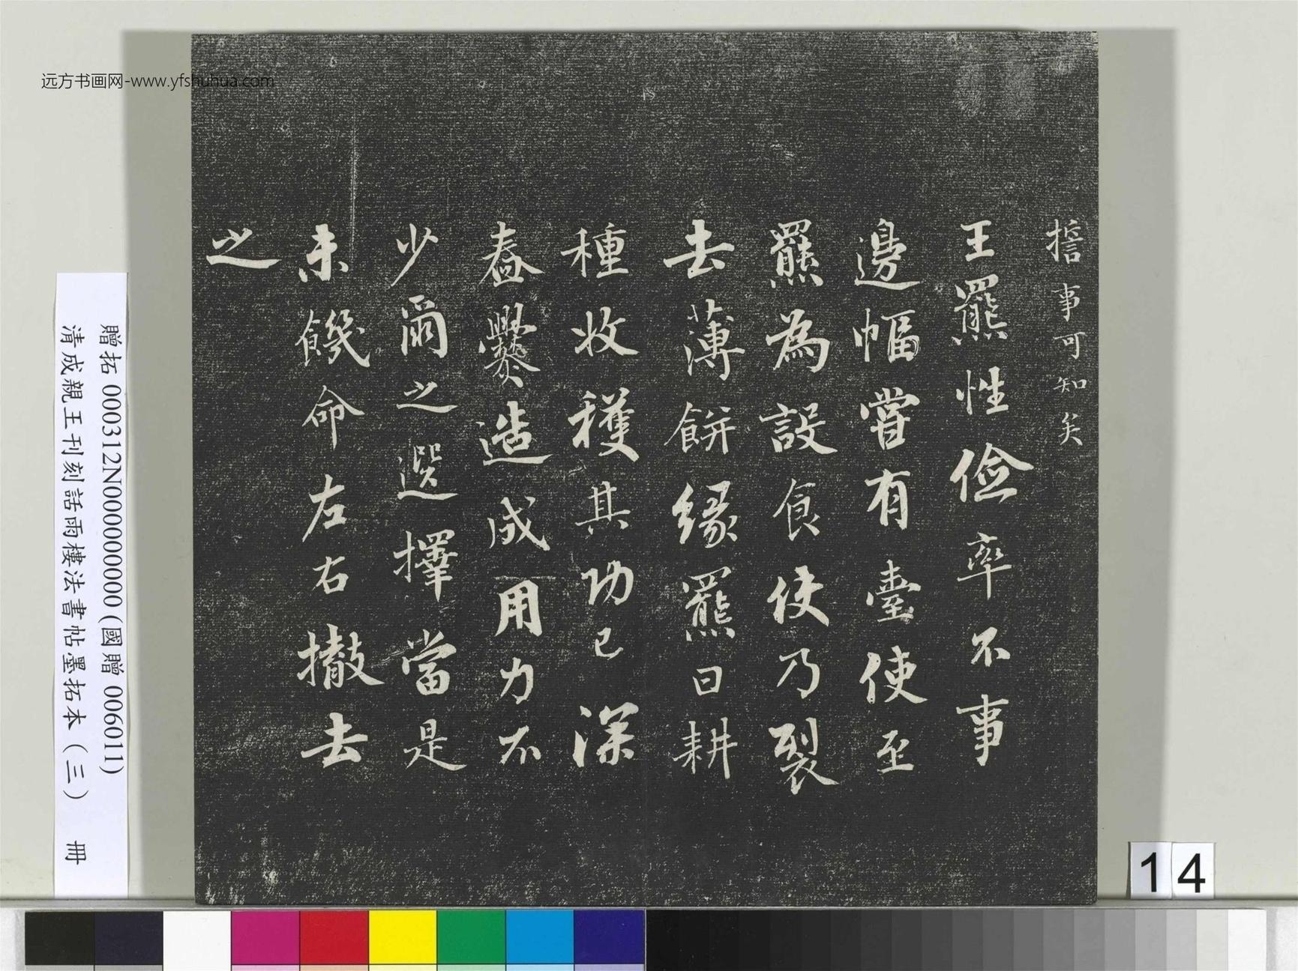 远方书画网-www.yfshuhua.com
擔事可知矣
王羆性儉率不事
邊幅嘗有臺使至
羆為設食使乃裂
去薄餅緣羆曰耕
種收穫其功已深
舂爨造成用力不
少爾之選擇當是
未饑命左右撤去
之
贈拓 000312N000000000 (國贈 006011)
清成親王刊刻話雨樓法書帖墨拓本 (三) 冊
14